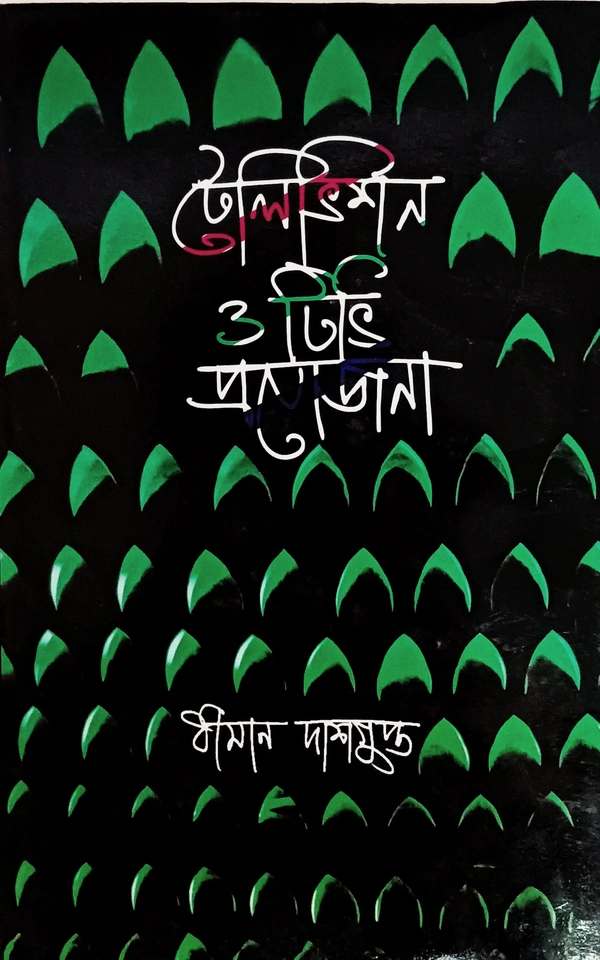 টেলিভিশন
ও টিভি
প্রযোজনা
ধীমান দাশগুপ্ত